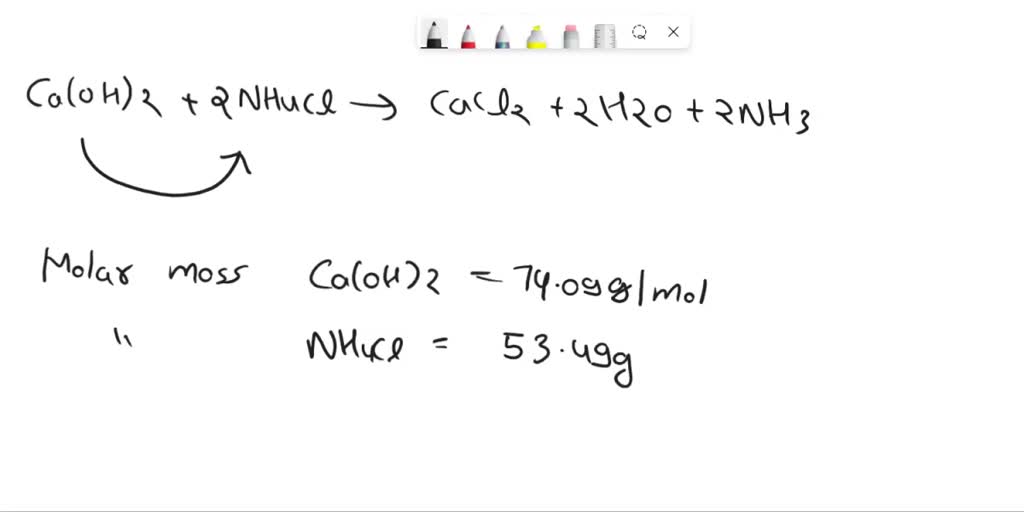 Ca(OH)2 + 2NH4Cl → CaCl2 + 2H2O + 2NH3
Molar mass Ca(OH)2 = 74.09g/mol
" NH4Cl = 53.49g